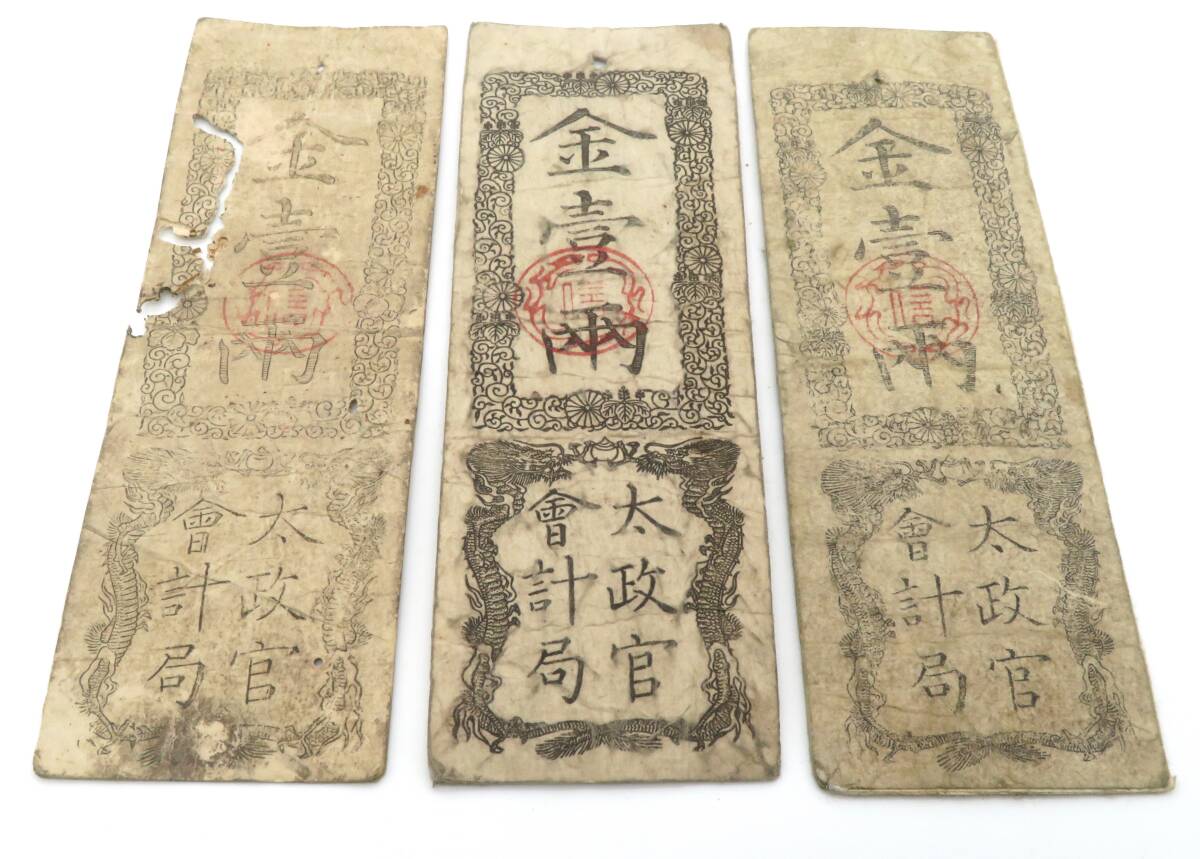 金壹兩
太政官
會計局
金壹兩
太政官
會計局
金壹兩
太政官
會計局